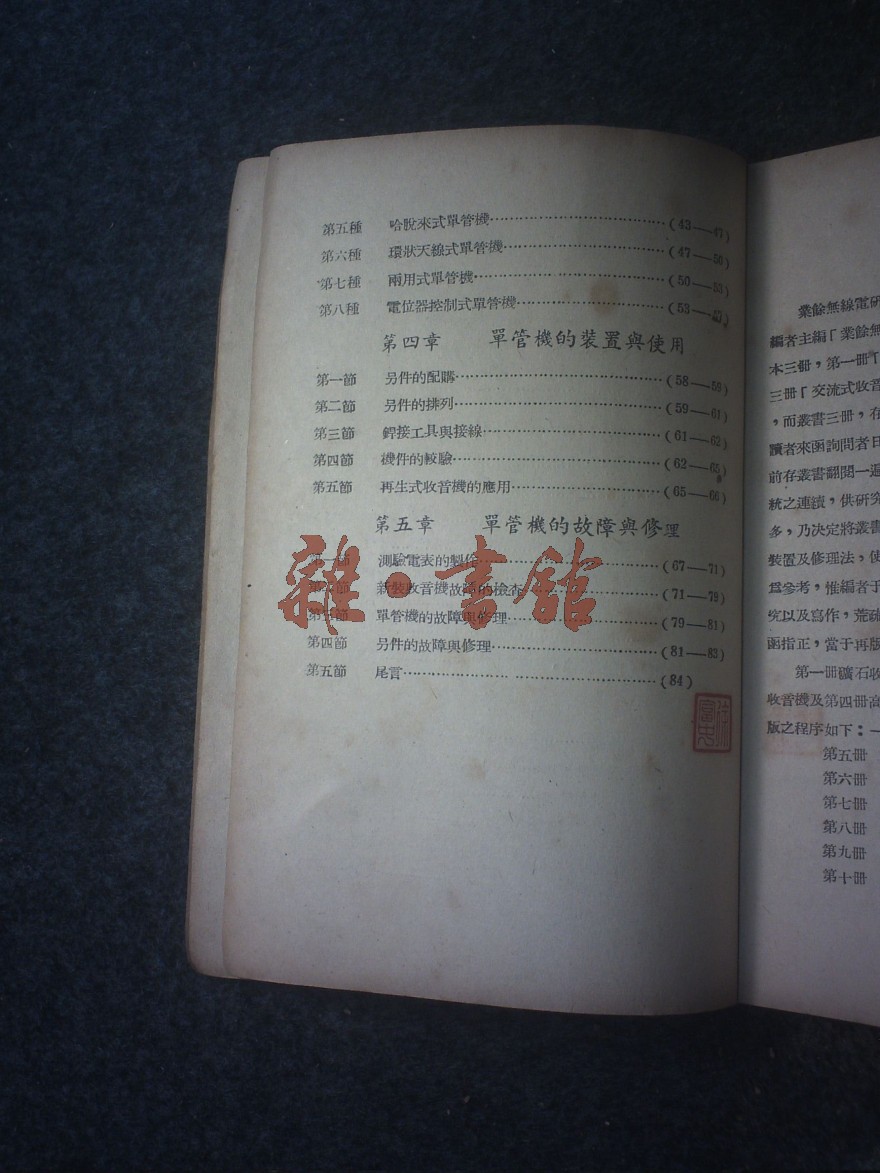 第五種 哈脫來式單管機……………………(43—47)
第六種 環狀天線式單管機……………………(47—50)
第七種 兩用式單管機……………………(50—53)
第八種 電位器控制式單管機……………………(53—
第四章 單管機的裝置與使用
第一節 另件的配購……………………(58—59)
第二節 另件的排列……………………(59—61)
第三節 銲接工具與接線……………………(61—62)
第四節 機件的較驗……………………(62—65)
第五節 再生式收音機的應用……………………(65—66)
第五章 單管機的故障與修理
第一節 測驗電表的製作……………………(67—71)
第二節 新裝收音機故障的檢查……………………(71—79)
第三節 單管機的故障與修理……………………(79—81)
第四節 另件的故障與修理……………………(81—83)
第五節 尾言……………………(84)
雜·書館
業餘無線電研
編者主編「業餘無
本三冊,第一冊「
三冊「交流式收音
,而叢書三冊,存
讀者來函詢問者日
前存叢書翻閱一遍
統之連續,供研究
多,乃決定將叢書
裝置及修理法,使
爲參考,惟編者于
究以及寫作,荒疏
函指正,當于再版
第一冊礦石收
收音機及第四冊高
版之程序如下:—
第五冊
第六冊
第七冊
第八冊
第九冊
第十冊